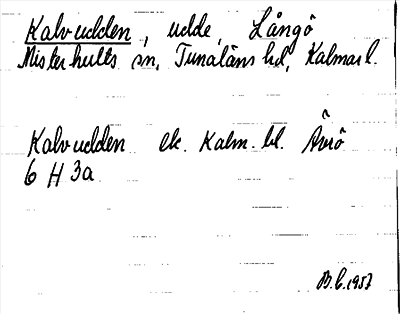 Kalvudden, udde, Långö
Misterhults sn, Tunaläns hd, Kalmar l.
Kalvudden ek. Kalm. bl. Ävrö
6 H 3a
B.C. 1957